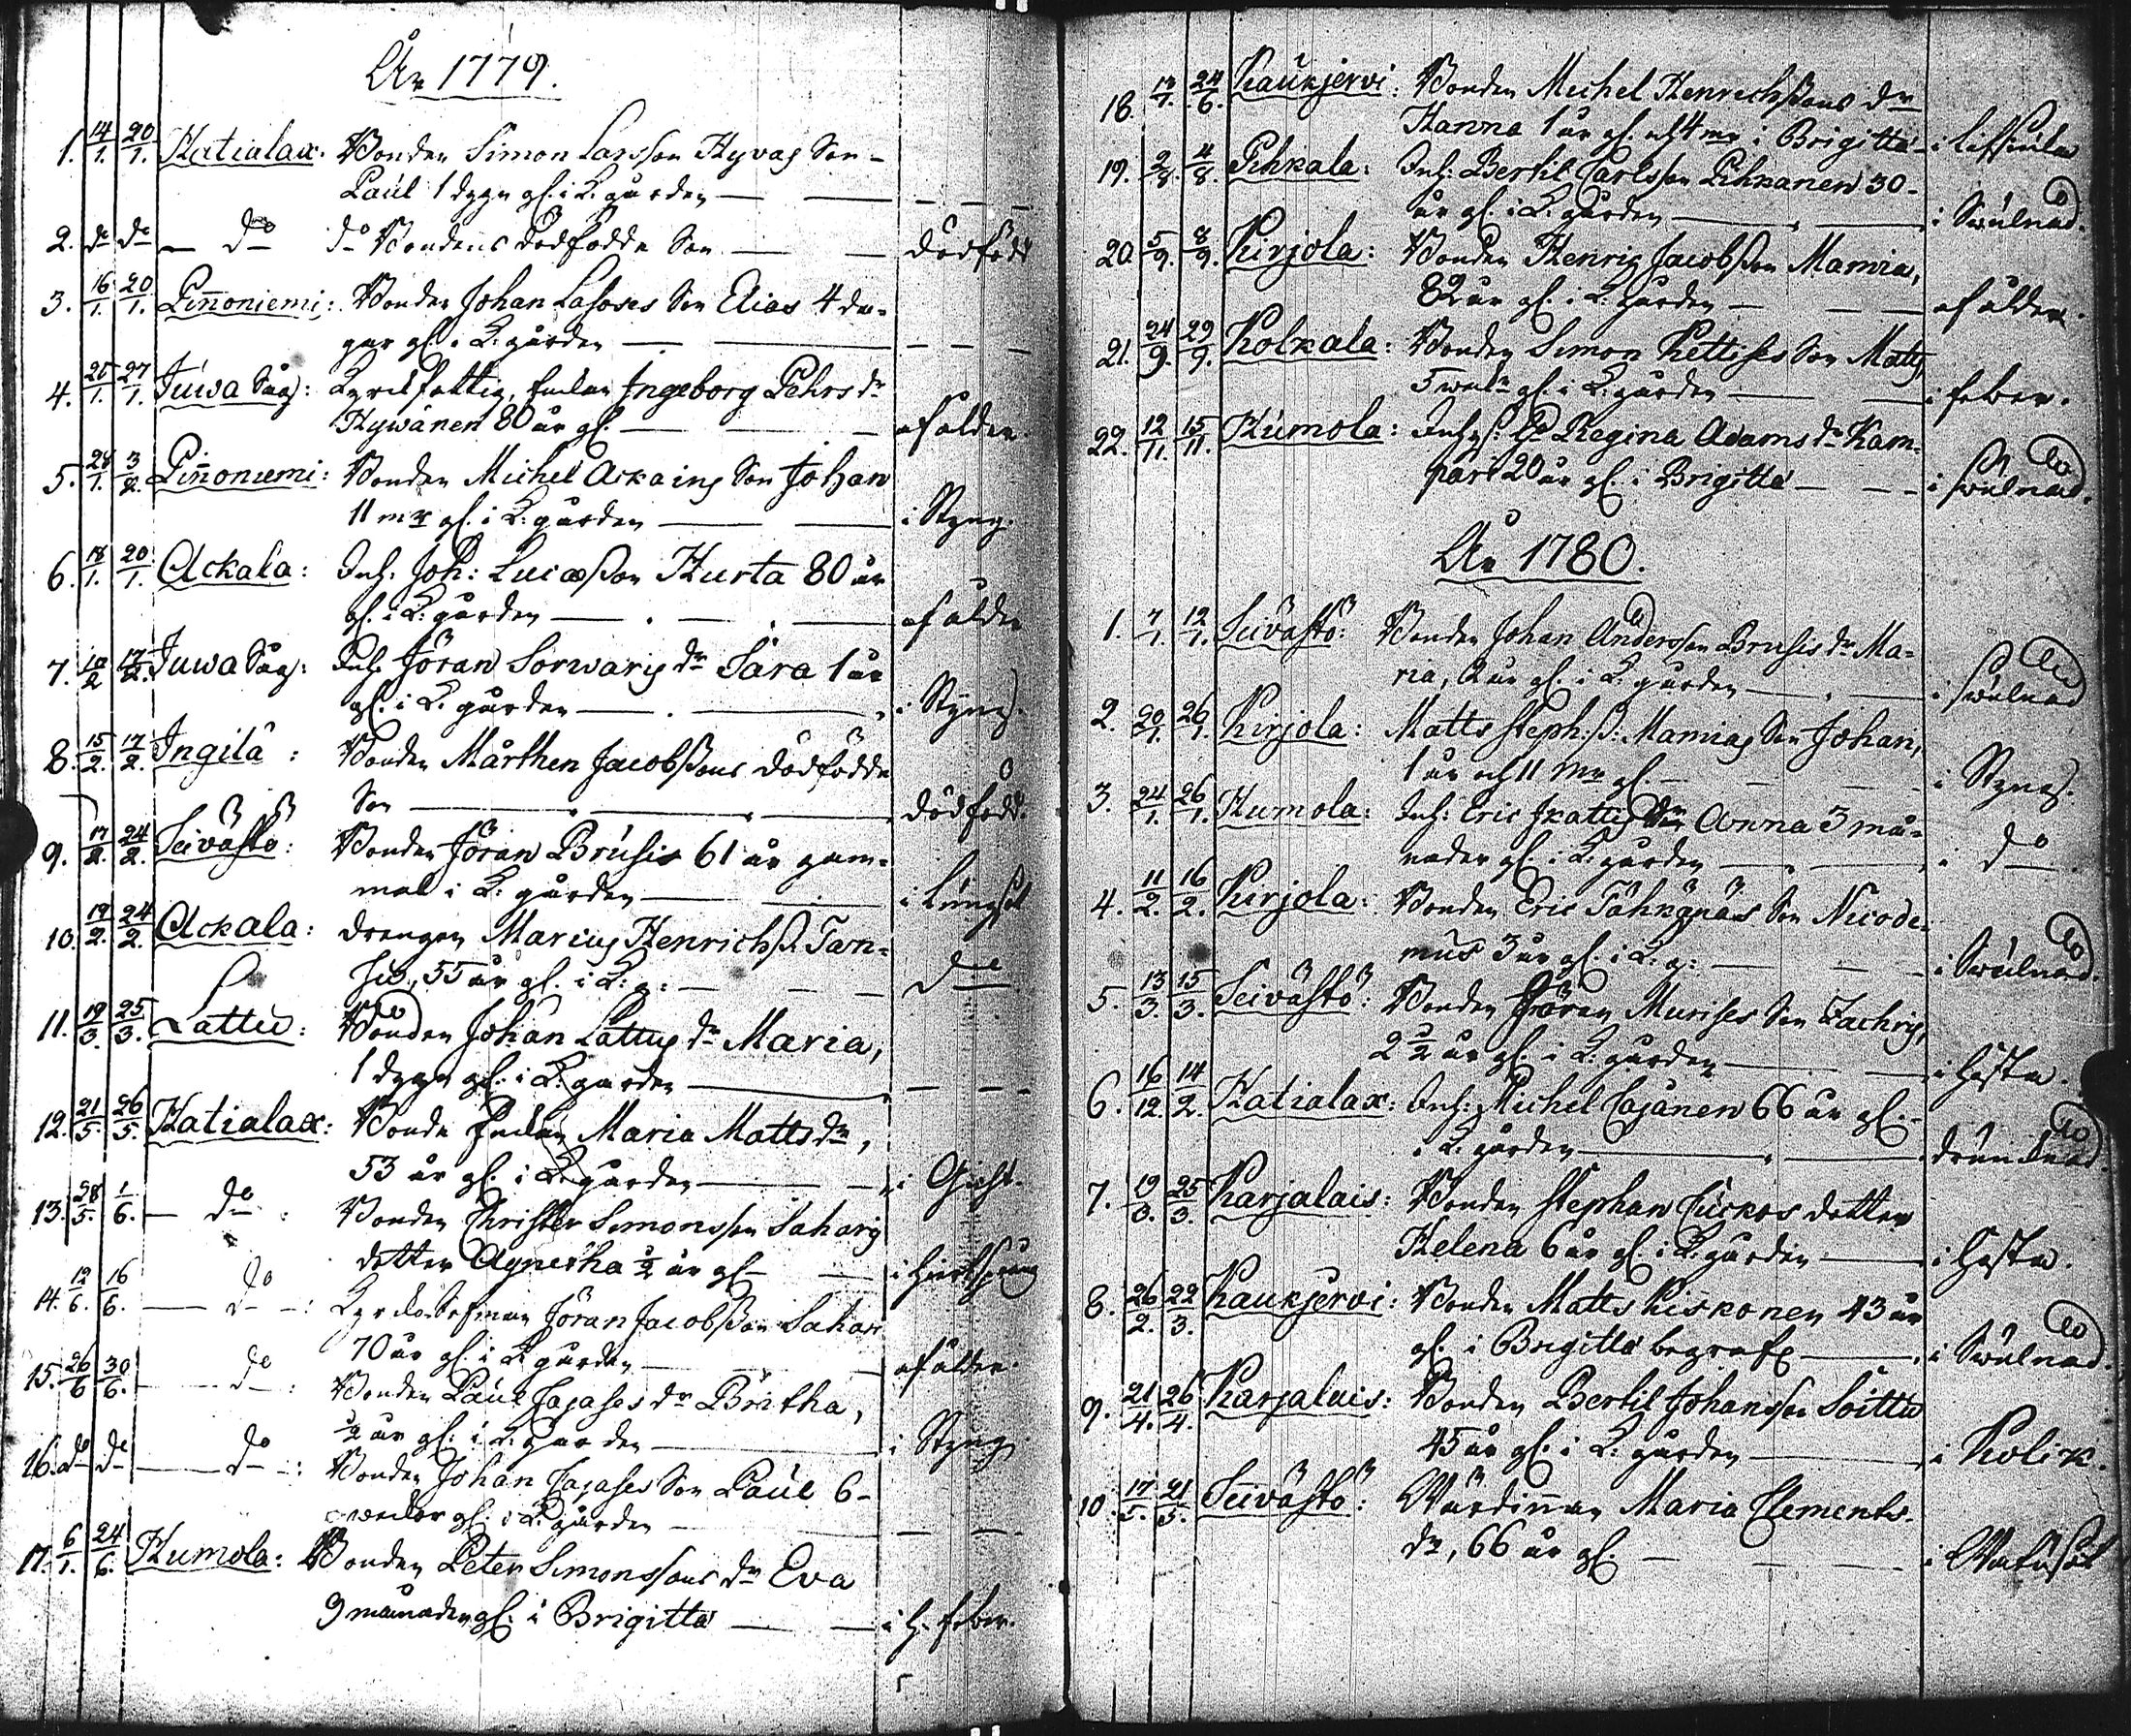 År 1779.
1. 14/1. 20/1. Katialax. Bonden Simon Larsson Hyväs Son
Paul 1 dygn gl. i K: gården
2. do do — do do Bondens dödfödde Son — dödfödd
3. 16/1. 20/1. Pinnoniemi: Bonden Johan Lasoses Son Elias 4 da-
gar gl. i K: gården
4. 25/1. 27/1. Juwa Såg: Kyrkfattig, Enkan Ingeborg Pehrs dr
Hywänen 80 år gl. — af ålder.
5. 28/1. 3/2. Pinnoniemi: Bonden Michel Askains Son Johan
11 mr gl. i K: gården — i Styng.
6. 18/1. 20/1. Ackala: Inh. Joh: Lucasson Hurta 80 år
gl. i K: gården — af ålder
7. 10/2 17/2. Juwa Såg: Inh. Jöran Sorwaris dr Sara 1 år
gl. i K. gården — i Styng.
8. 15/2. 17/2. Ingilä: Bonden Mårthen Jacobssons dödfödde
Son — dödfödd.
9. 17/2. 24/2. Seivästö: Bonden Jöran Brusis 61 år gam-
mal i K: gården — i Lungsot
10. 19/2. 24/2. Ackala: Drengen Marcus Henrichss. Tam-
55 år gl. i K: g: — do
11. 19/3. 25/3. Lattu: Bonden Johan Lattus dr Maria,
1 dygn gl. i K: gården
12. 21/5. 26/5. Katialax: Bonde Enkan Maria Matts dr,
53 år gl. i K: gården — i Gicht.
13. 28/5. 1/6. — do Bonden Christer Simonsson Saharis
dotter Agnetha 1/2 år gl. —
14. 12/6. 16/6. — do: Jöran Jacobsson Sahari
70 år gl. i K: gården — af ålder.
15. 26/6 30/6. — do: Bonden Paul Jajases dr Britha,
1/2 år gl. i K: gården — i Styng.
16. do do — do: Bonden Johan Jajases Son Paul 6
weckor gl. i K: gården
17. 6/1. 24/6. Humola: Bonden Peter Simonssons dr Eva
9 månader gl. i Brigitta — i h. feber.
18. 14/7. 24/6. Kaukjervi: Bonden Michel Henrichssons dr
Hanna 1 år gl. och 4 mr i Brigitta —
19. 2/8. 4/8. Pihkala: Inh: Bertil Carlsson Pihkanen 30
år gl. i K: gården — i Swulnad.
20. 5/9. 8/9. Kirjola: Bonden Henric Jacobsson Mamia,
82 år gl. i K: gården — af ålder.
21. 24/9. 29/9. Kolkala: Bonden Simon Kettises Son Matts,
5 gl. i K: gården — i feber.
22. 12/11. 15/11. Humola: Regina Adams dr Kam-
pari 20 år gl. i Brigitta — i swulnad.
År 1780.
1. 7/1. 12/1. Seivästö: Bonden Johan Andersson Brusis dr Ma-
ria, 2 år gl. i K: gården — i swulnad
2. 20/1. 26/1. Kirjola: Matts Steph: s: Mamias Son Johan,
1 år och 11 mr gl. — i Styng.
3. 24/1. 26/1. Humola: Inh: Eric Skattis dr Anna 3 må-
nader gl. i K: gården — i do.
4. 11/2. 16/2. Kirjola: Bonden Eric Tähkäpääs Son Nicode-
mus 3 år gl. i K: g: — i Swulnad.
5. 13/3. 15/3. Seivästö: Bonden Jöran Murises Son Zachris,
2 1/2 år gl. i K: gården — i Hosta.
6. 16/12. 14/2. Katialax: Inh: Michel Cajanen 66 år gl.
i K: gården — drunknad.
7. 19/3. 25/3. Karjalais: Bonden Stephan Cuckos dotter
Helena 6 år gl. i K: gården — i Hosta.
8. 26/2. 22/3. Kaukjervi: Bonden Matts Kiskonen 43 år
gl. i Brigitta begrafn — i Swulnad.
9. 21/4. 26/4. Karjalais: Bonden Bertil Johansson Soittu
45 år gl. i K: gården — i Kolik.
10 17/5. 21/5. Seivästö: Wärdinnan Maria Clements
dr, 66 år gl. — i Watusot